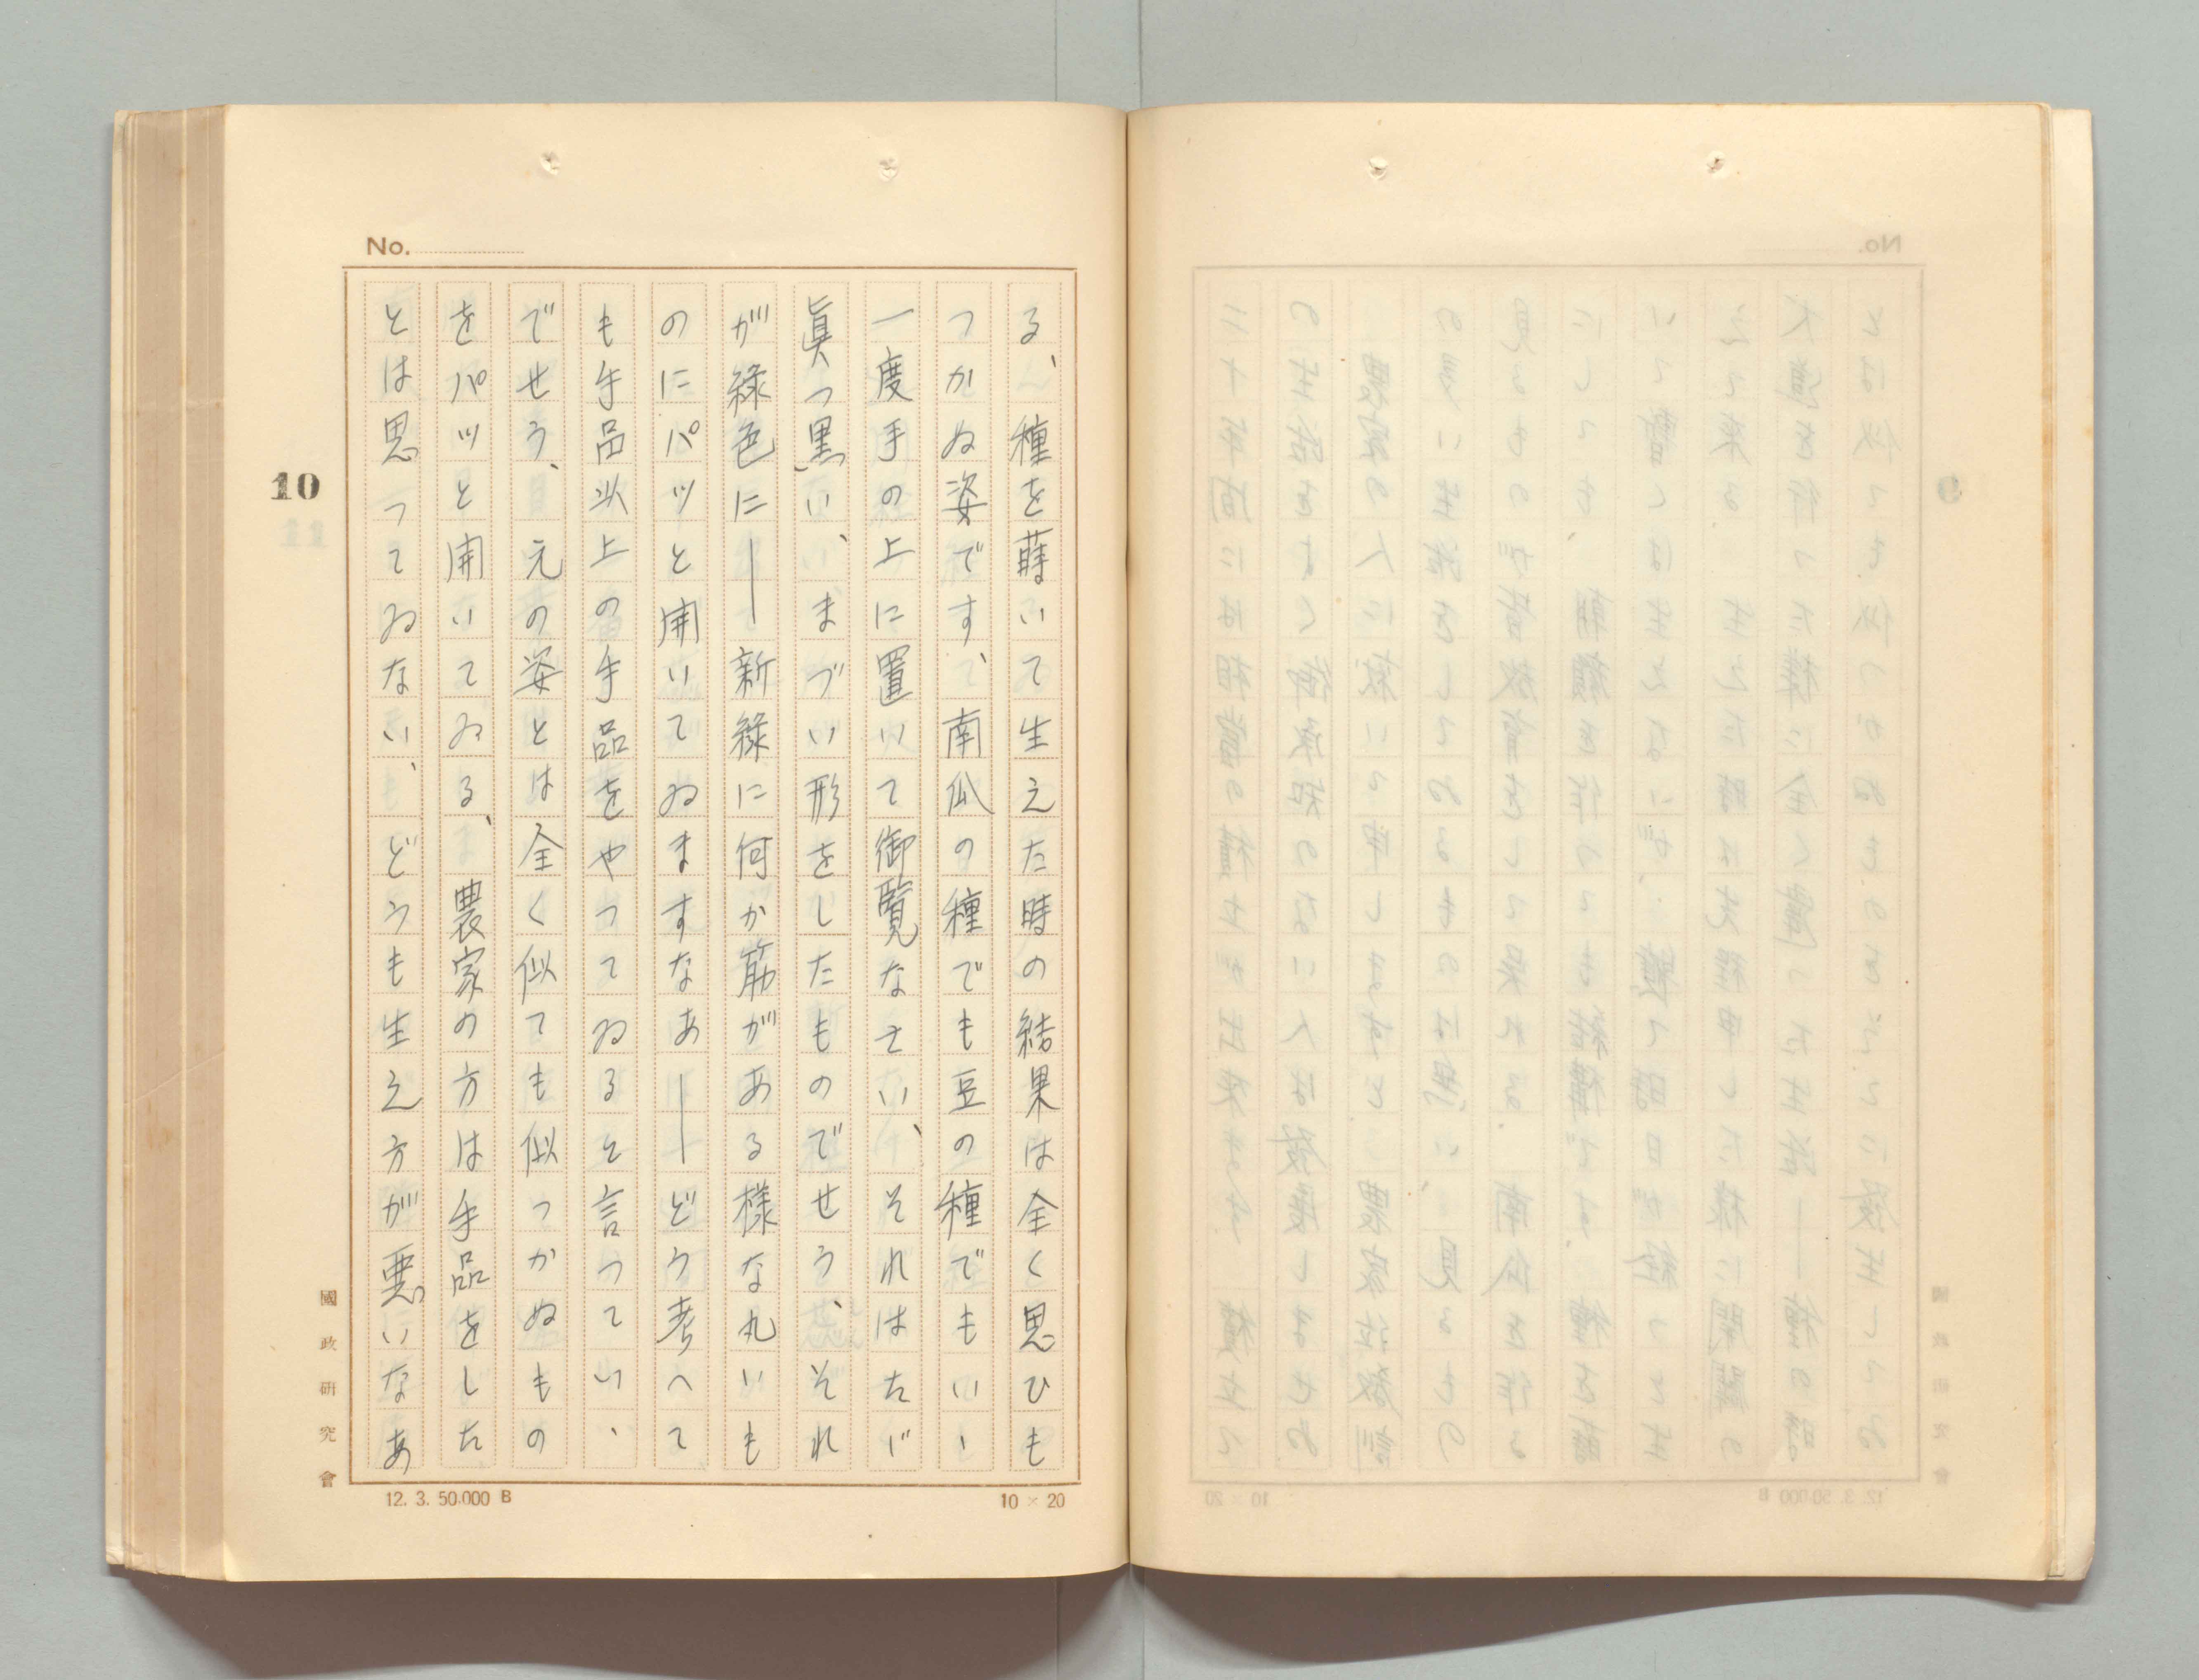 No.
る、種を蒔いて生えた時の結果は全く思ひも
つかぬ姿です、南瓜の種でも豆の種でもいゝ
一度手の上に置いて御覧なさい、それはたゞ
眞っ黒い、まづい形をしたものでせう、それ
が綠色に――新綠に何か筋がある様な丸いも
のにパッと開いてゐますなあ――どう考へて
も手品以上の手品をやってゐると言っていゝ
でせう、元の姿とは全く似ても似つかぬもの
をパッと開いてゐる、農家の方は手品をした
とは思ってゐない、どうも生え方が悪いなあ
10
國政研究會
12. 3. 50,000 B
10 × 20